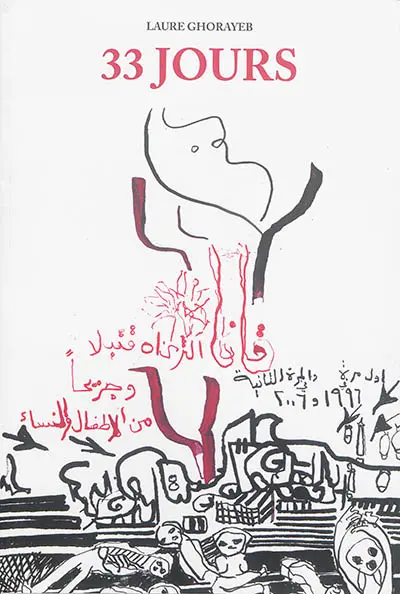 LAURE GHORAYEB
33 JOURS
قانا قتيلا
وجريحاً
من الاطفال والنساء
اول مرة في والمرة الثانية
١٩٩٦ و ٢٠٠٦